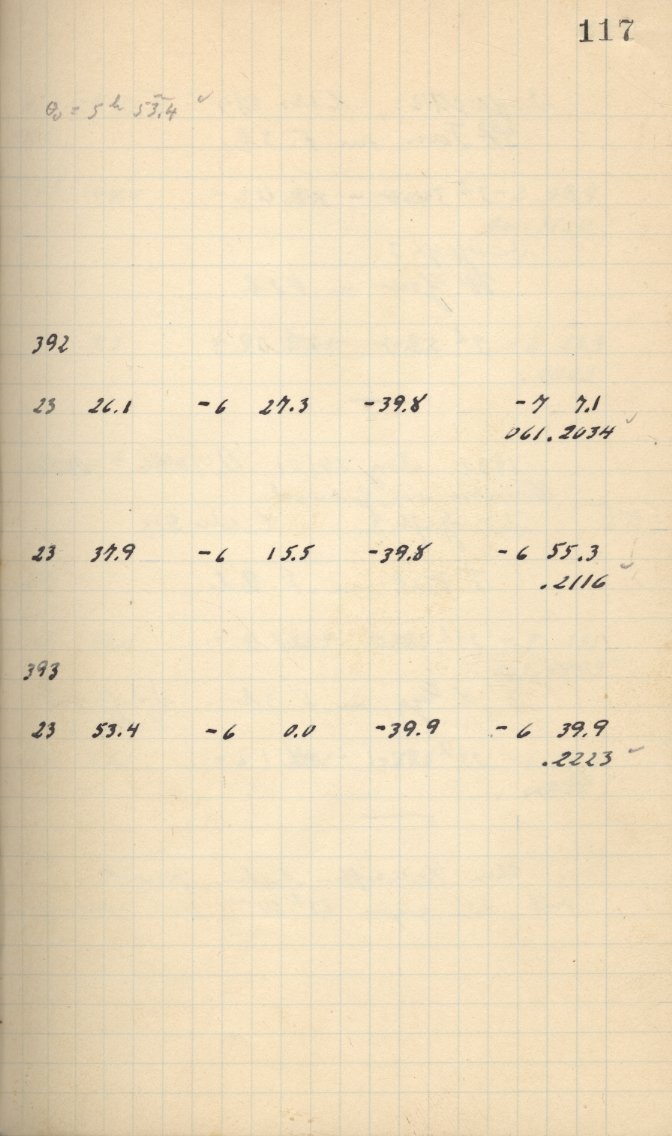 117
θ₀ = 5ʰ 53.4ᵐ ✓
392
23 26.1 -6 27.3 -39.8 -7 7.1
061.2034 ✓
23 37.9 -6 15.5 -39.8 -6 55.3
.2116 ✓
393
23 53.4 -6 0.0 -39.9 -6 39.9
.2223 ✓